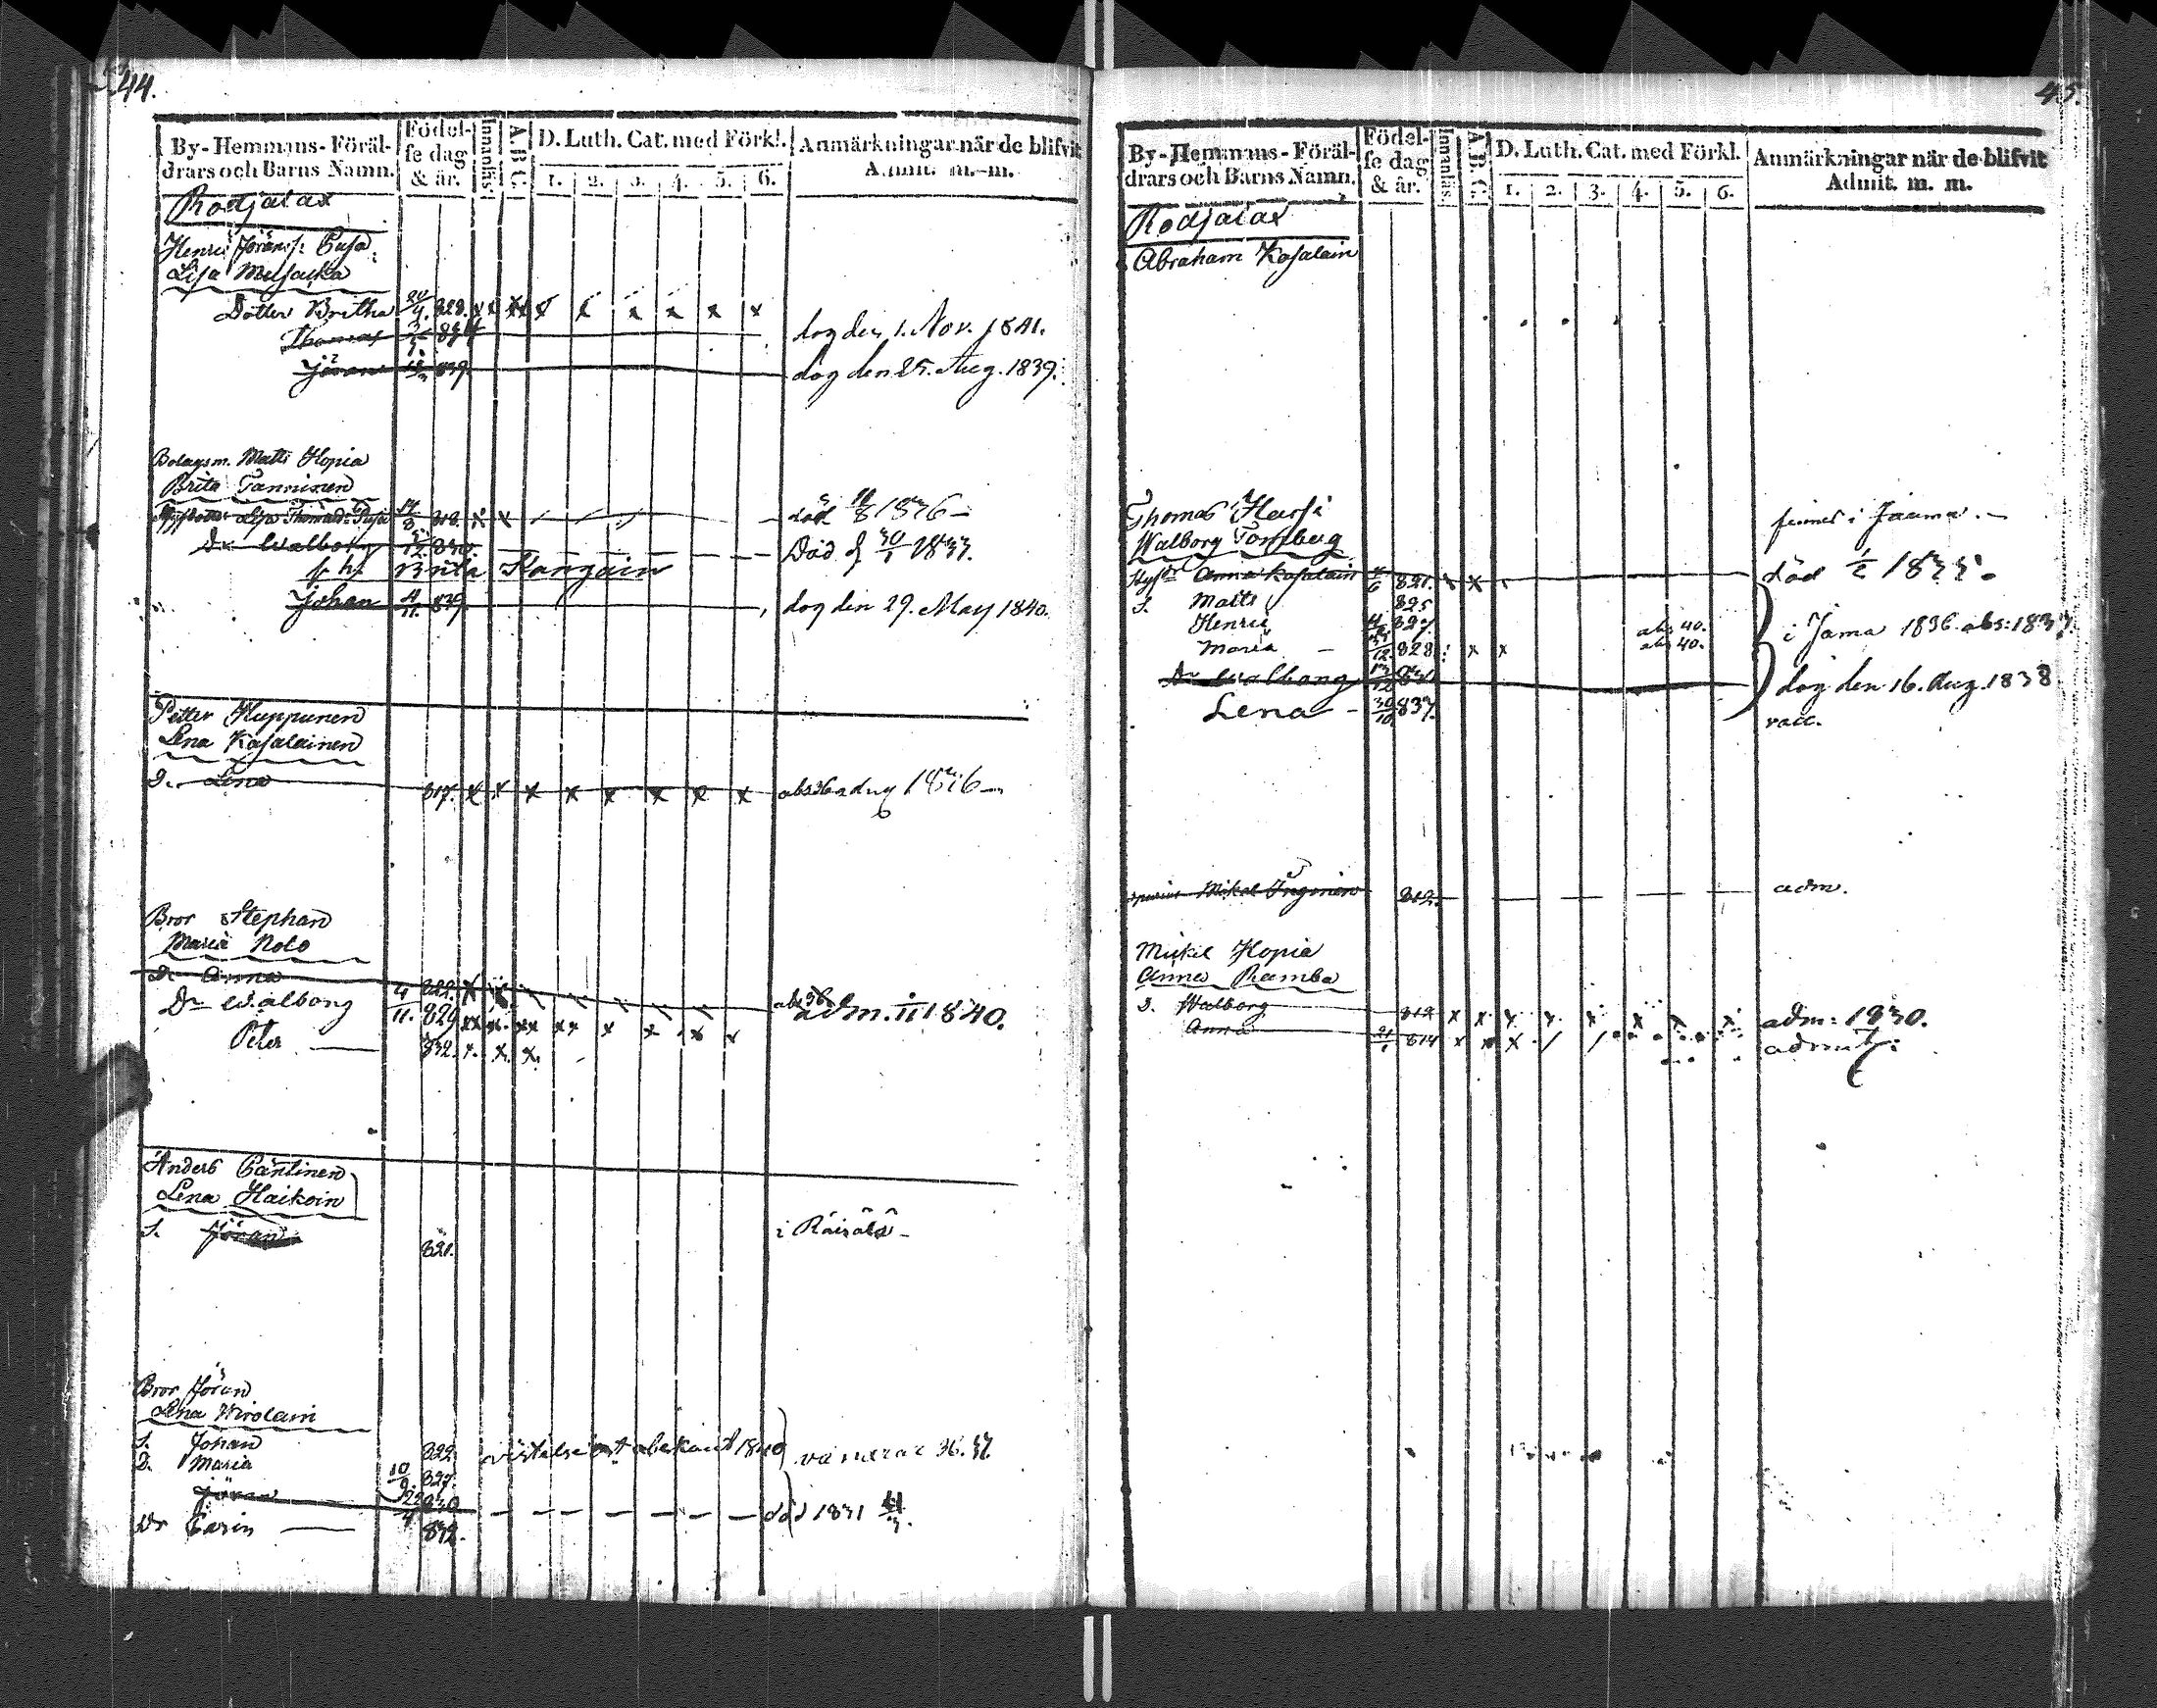 44.
By-Hemmans-Föräl-
drars och Barns Namn.
Födel-
se dag
& år.
Innanläs
A.B.C.
D. Luth. Cat. med Förkl.
1. 2. 3. 4. 5. 6.
Anmärkningar när de blifvit
Admit. m. m.
Rodjalax
Henric Jöransf: Pusa
Lisa
Dotter Britha 20/4. 828. x x xx x x x x x x
Thomas 834 dog den 1. Nov. 1841.
Jöran 839. dog den 25. Aug. 1839.
Bolagsm. Matts Hopia
Brita Tanninen
Lisa Thomasd: Pusa 14/8 818. x x död 11/8 1836
Dr Walborg 830. Död d. 30/1 1833.
f. h. Brita Kangain
Johan 4/11. 839. dog den 29. May 1840.
Petter Huppunen
Lena Kasalainen
D. Lena 817. x x x x x x x x 1836
Bror Stephan
Maria Nolo
Dr Anna 822. x x
Dr Walborg 4/11. 829 xx x. xx xx x x x x adm. 1840.
Peter 832. x. x. x.
Anders Päntinen
Lena Haikoin
S. Jöran 821. i Räisälä
Bror Jöran
Lena Hirolain
S. Johan 822. 1840
D. Maria 10/9. 827. 36. 37.
Jöran 22/4 830 död 1831
Dr Carin 832.
45.
By-Hemmans-Föräl-
drars och Barns Namn.
Födel-
se dag
& år.
Innanläs
A.B.C.
D. Luth. Cat. med Förkl.
1. 2. 3. 4. 5. 6.
Anmärkningar när de blifvit
Admit. m. m.
Rodjalax
Abraham Kasalain
Thomas Harsi finnes i Jaama.
Walborg
Anna Kasalain 821. x x död 1/2 1833.
S. Matts 825
Henric 827. abs 40. i Jama 1836. abs: 1837.
Maria 12. 828 x x abs 40.
Dr Walborg 13/12 dog den 16. Aug. 1838
Lena 30/10 837. vacc.
Mikel 812. adm.
Mickel Hopia
Anna Ramba
D. Walborg 812 x x x x x x x x adm: 1830.
Anna 21/1 814 x x x